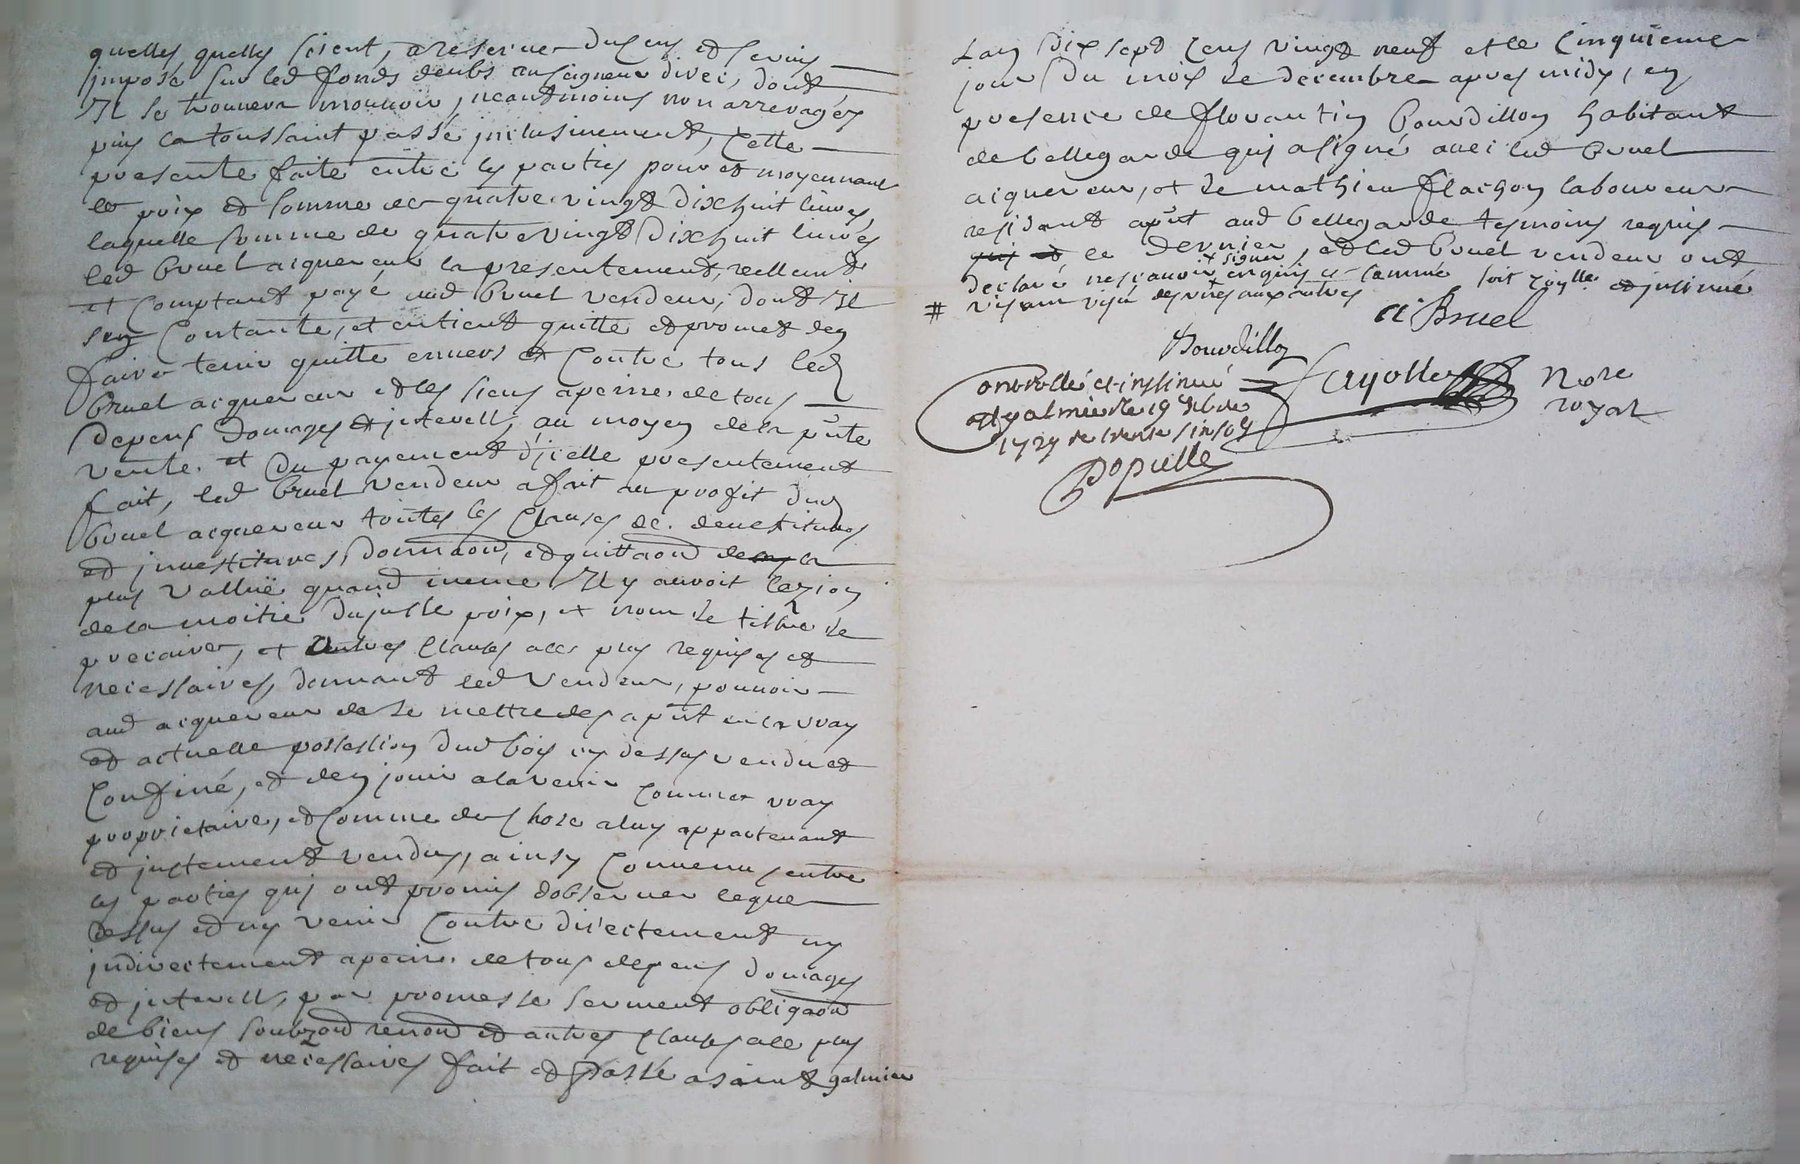 quelles quelles soient, a reserver du cens et servis
imposé sur led fonds deubs au seigneur direc, dont
Il se trouvera mouvoir, neantmoins non arreragés
puis la toussaint passé inclusivement, cette
presente faite entre les parties pour et moyennant
le prix et somme de quatre vingt dixhuit livres,
laquelle somme de quatrevingt dixhuit livres
led bruel acquereur la presentement, reellemt
et comptant payé aud bruel vendeur, dont Il
sen contante, et en tient quitte et promet len
faire tenir quitte envers et contre tous led
bruel acquereur et les siens apeine de tous
depens domages et interestz, au moyen de la pnte
vente et du payement d'icelle presentement
fait, led bruel vendeur a fait au profit dud
bruel acquereur toutes les clauses de devestitures
et investitures, donnaon, et quittaon de la
plus vallue quand mesme Il y auroit lezion
de la moitié du juste prix, et nom de tiltre de
precaire, et autres clauses ace plus requises et
necessaires, donnant led vendeur, pouvoir
aud acquereur de se mettre des apnt en la vray
et actuelle possession dud bois cy dessus vendu et
confiné, et den jouir alavenir comme vray
proprietaire, et comme de chose aluy appartenant
et justement vendus, ainsy convenu entre
les parties qui ont promis dobserver ceque
dessus et ny venir contre directement ny
indirectement apeine de tous depens domages
et interestz, par promesse serment obligaon
de biens soubzon renon et autres clauses ace plus
requises et necessaires fait et passé a saint galmier
Lan dix sept cens vingt neuf et le cinquieme
jour du mois de decembre apres midy, en
presence de florantin bourdillon habitant
de bellegarde qui a signé avec led bruel
acquereur, et de mathieu flachon laboureur
residant apnt aud bellegarde tesmoins requis
ce dernier, et led bruel vendeur ont
declaré ne sçavoir + signer enquis et sommé soit et insinué
#
a Bruel
Bourdillon
Fayolle Nore
royal
Controllé et insinué
a St galmier le 19 xbre
1729 re trente sin sols
Popielle